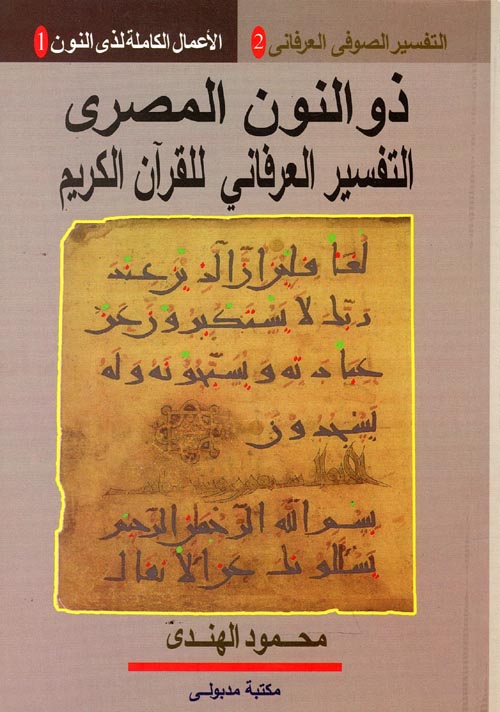 الأعمال الكاملة لذى النون 1
التفسير الصوفى العرفانى 2
ذو النون المصرى
التفسير العرفاني للقرآن الكريم
إن الذين عند
ربك لا يستكبرون عن
عبادته ويسبحونه وله
يسجدون
بسم الله الرحمن الرحيم
يسألونك عن الأنفال
محمود الهندى
مكتبة مدبولى